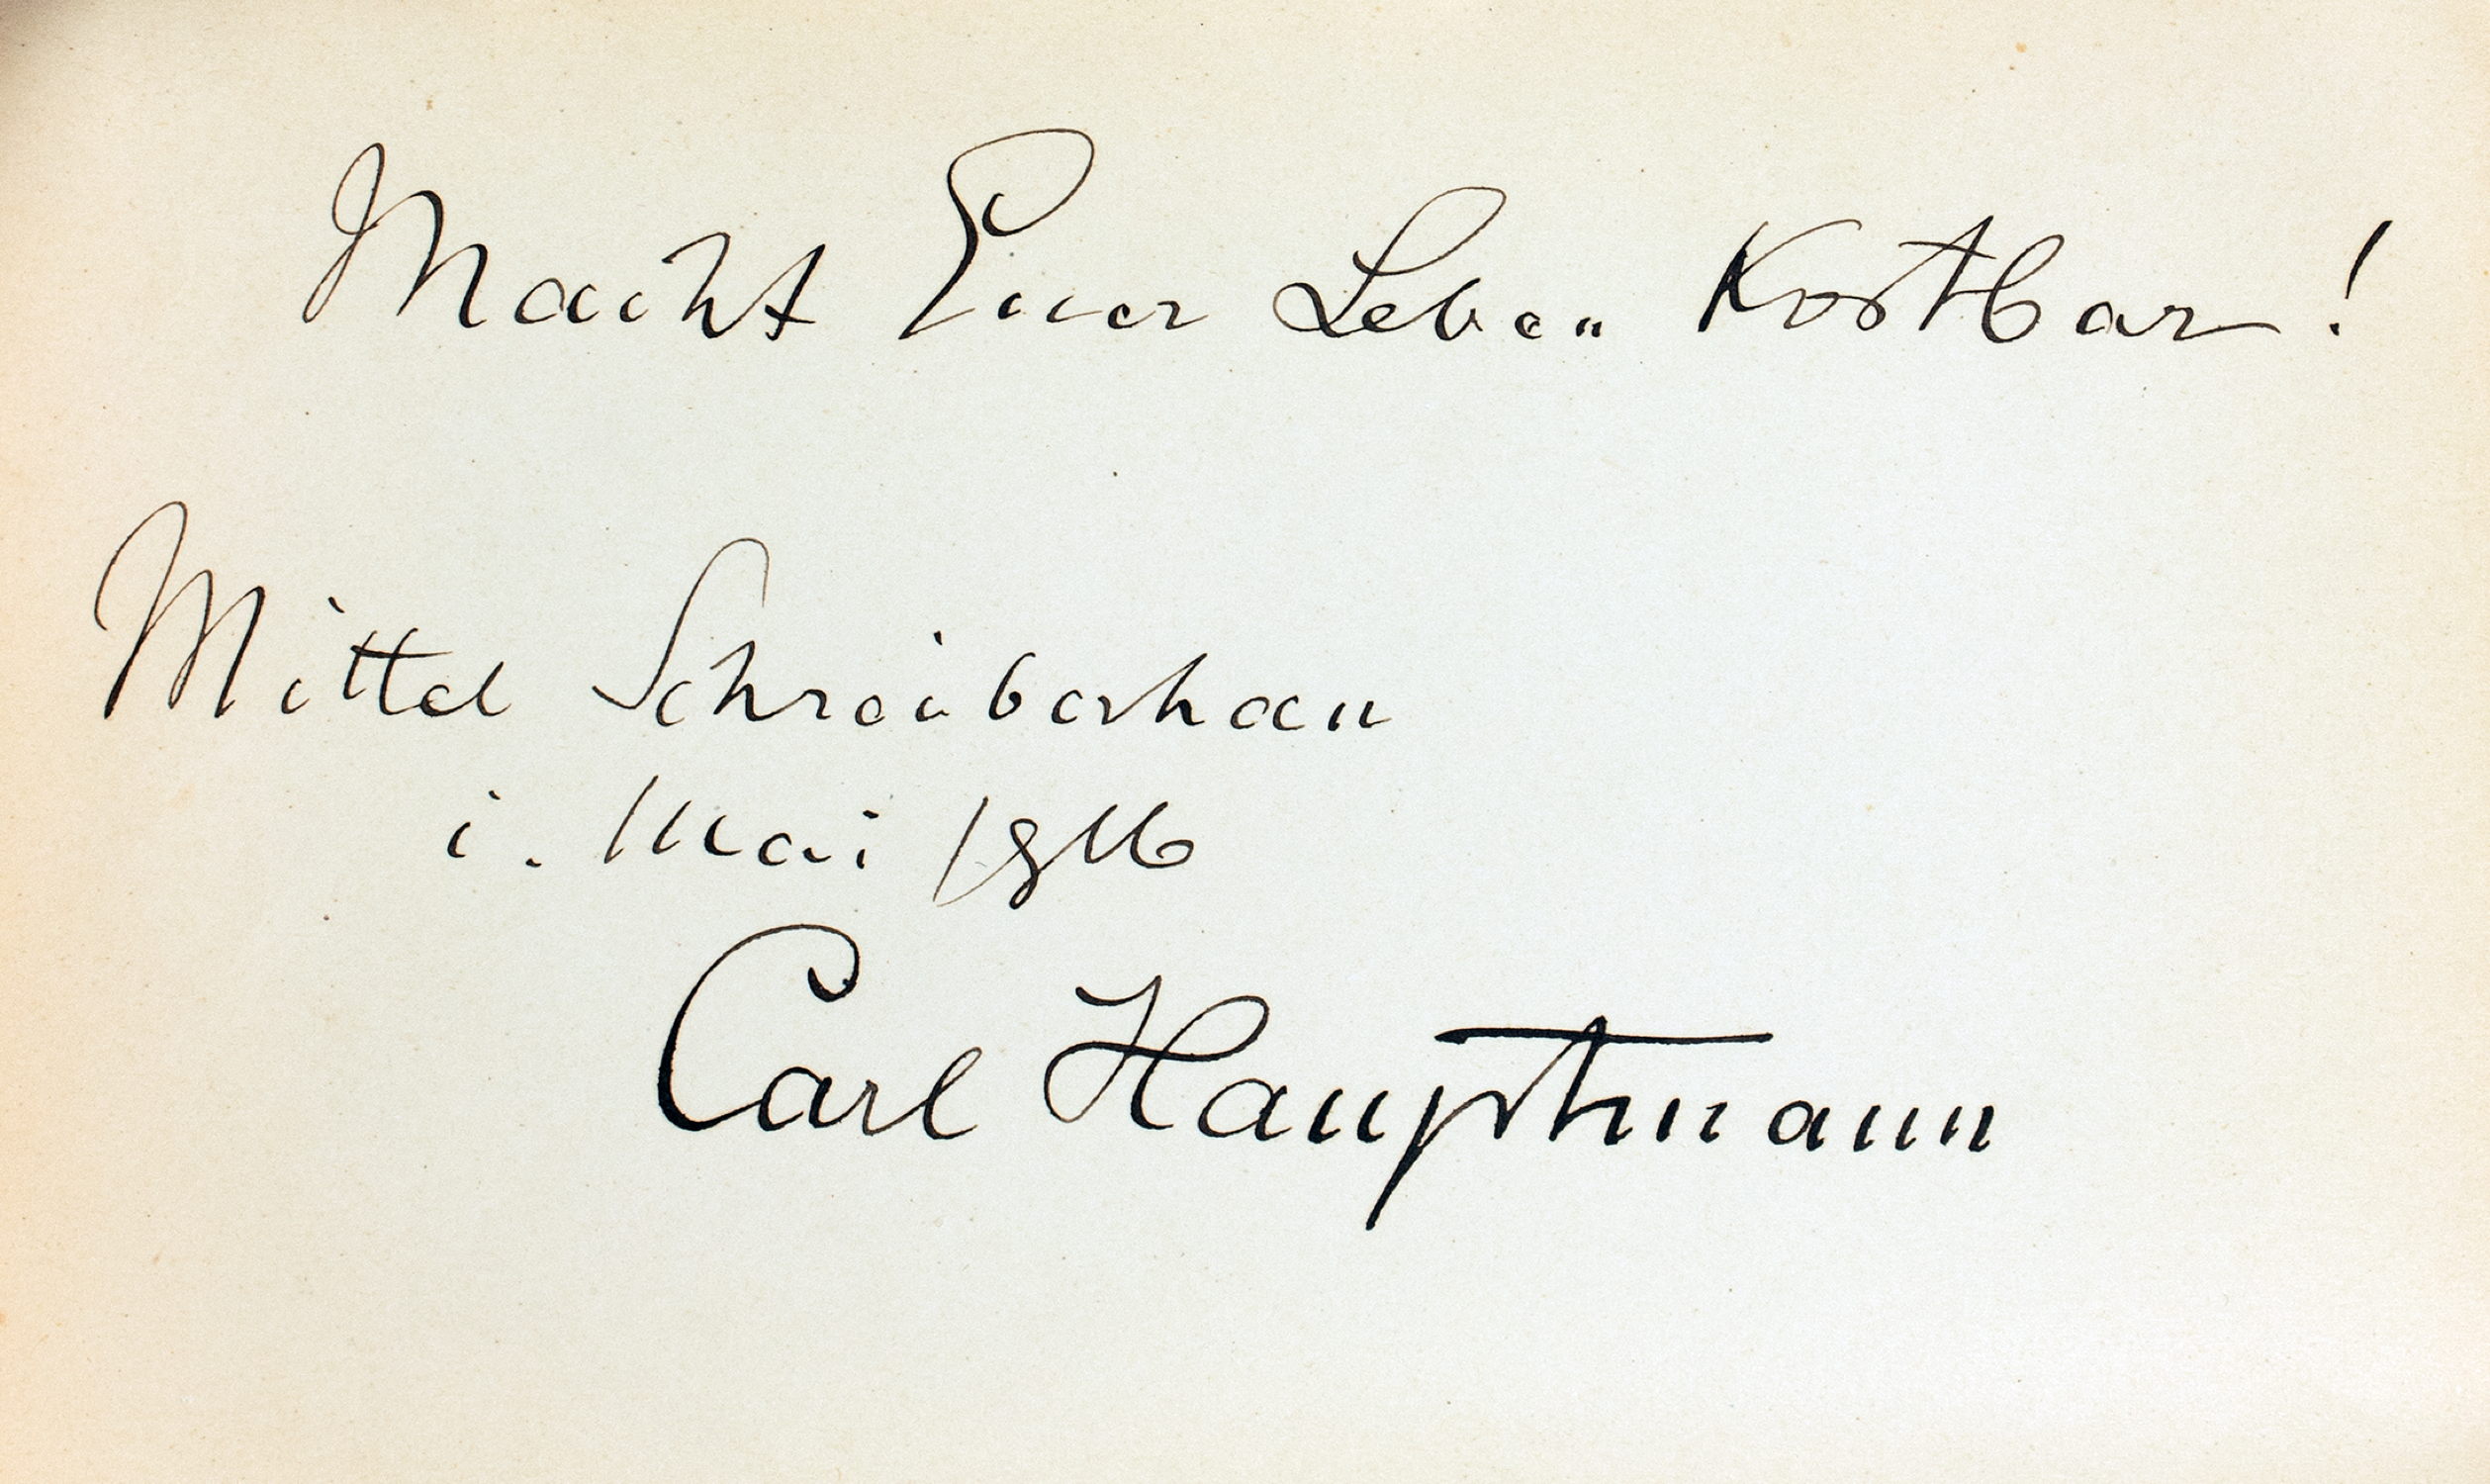 Macht Euer Leben Kostbar!
Mittel Schreiberhau
i. Mai 1916
Carl Hauptmann